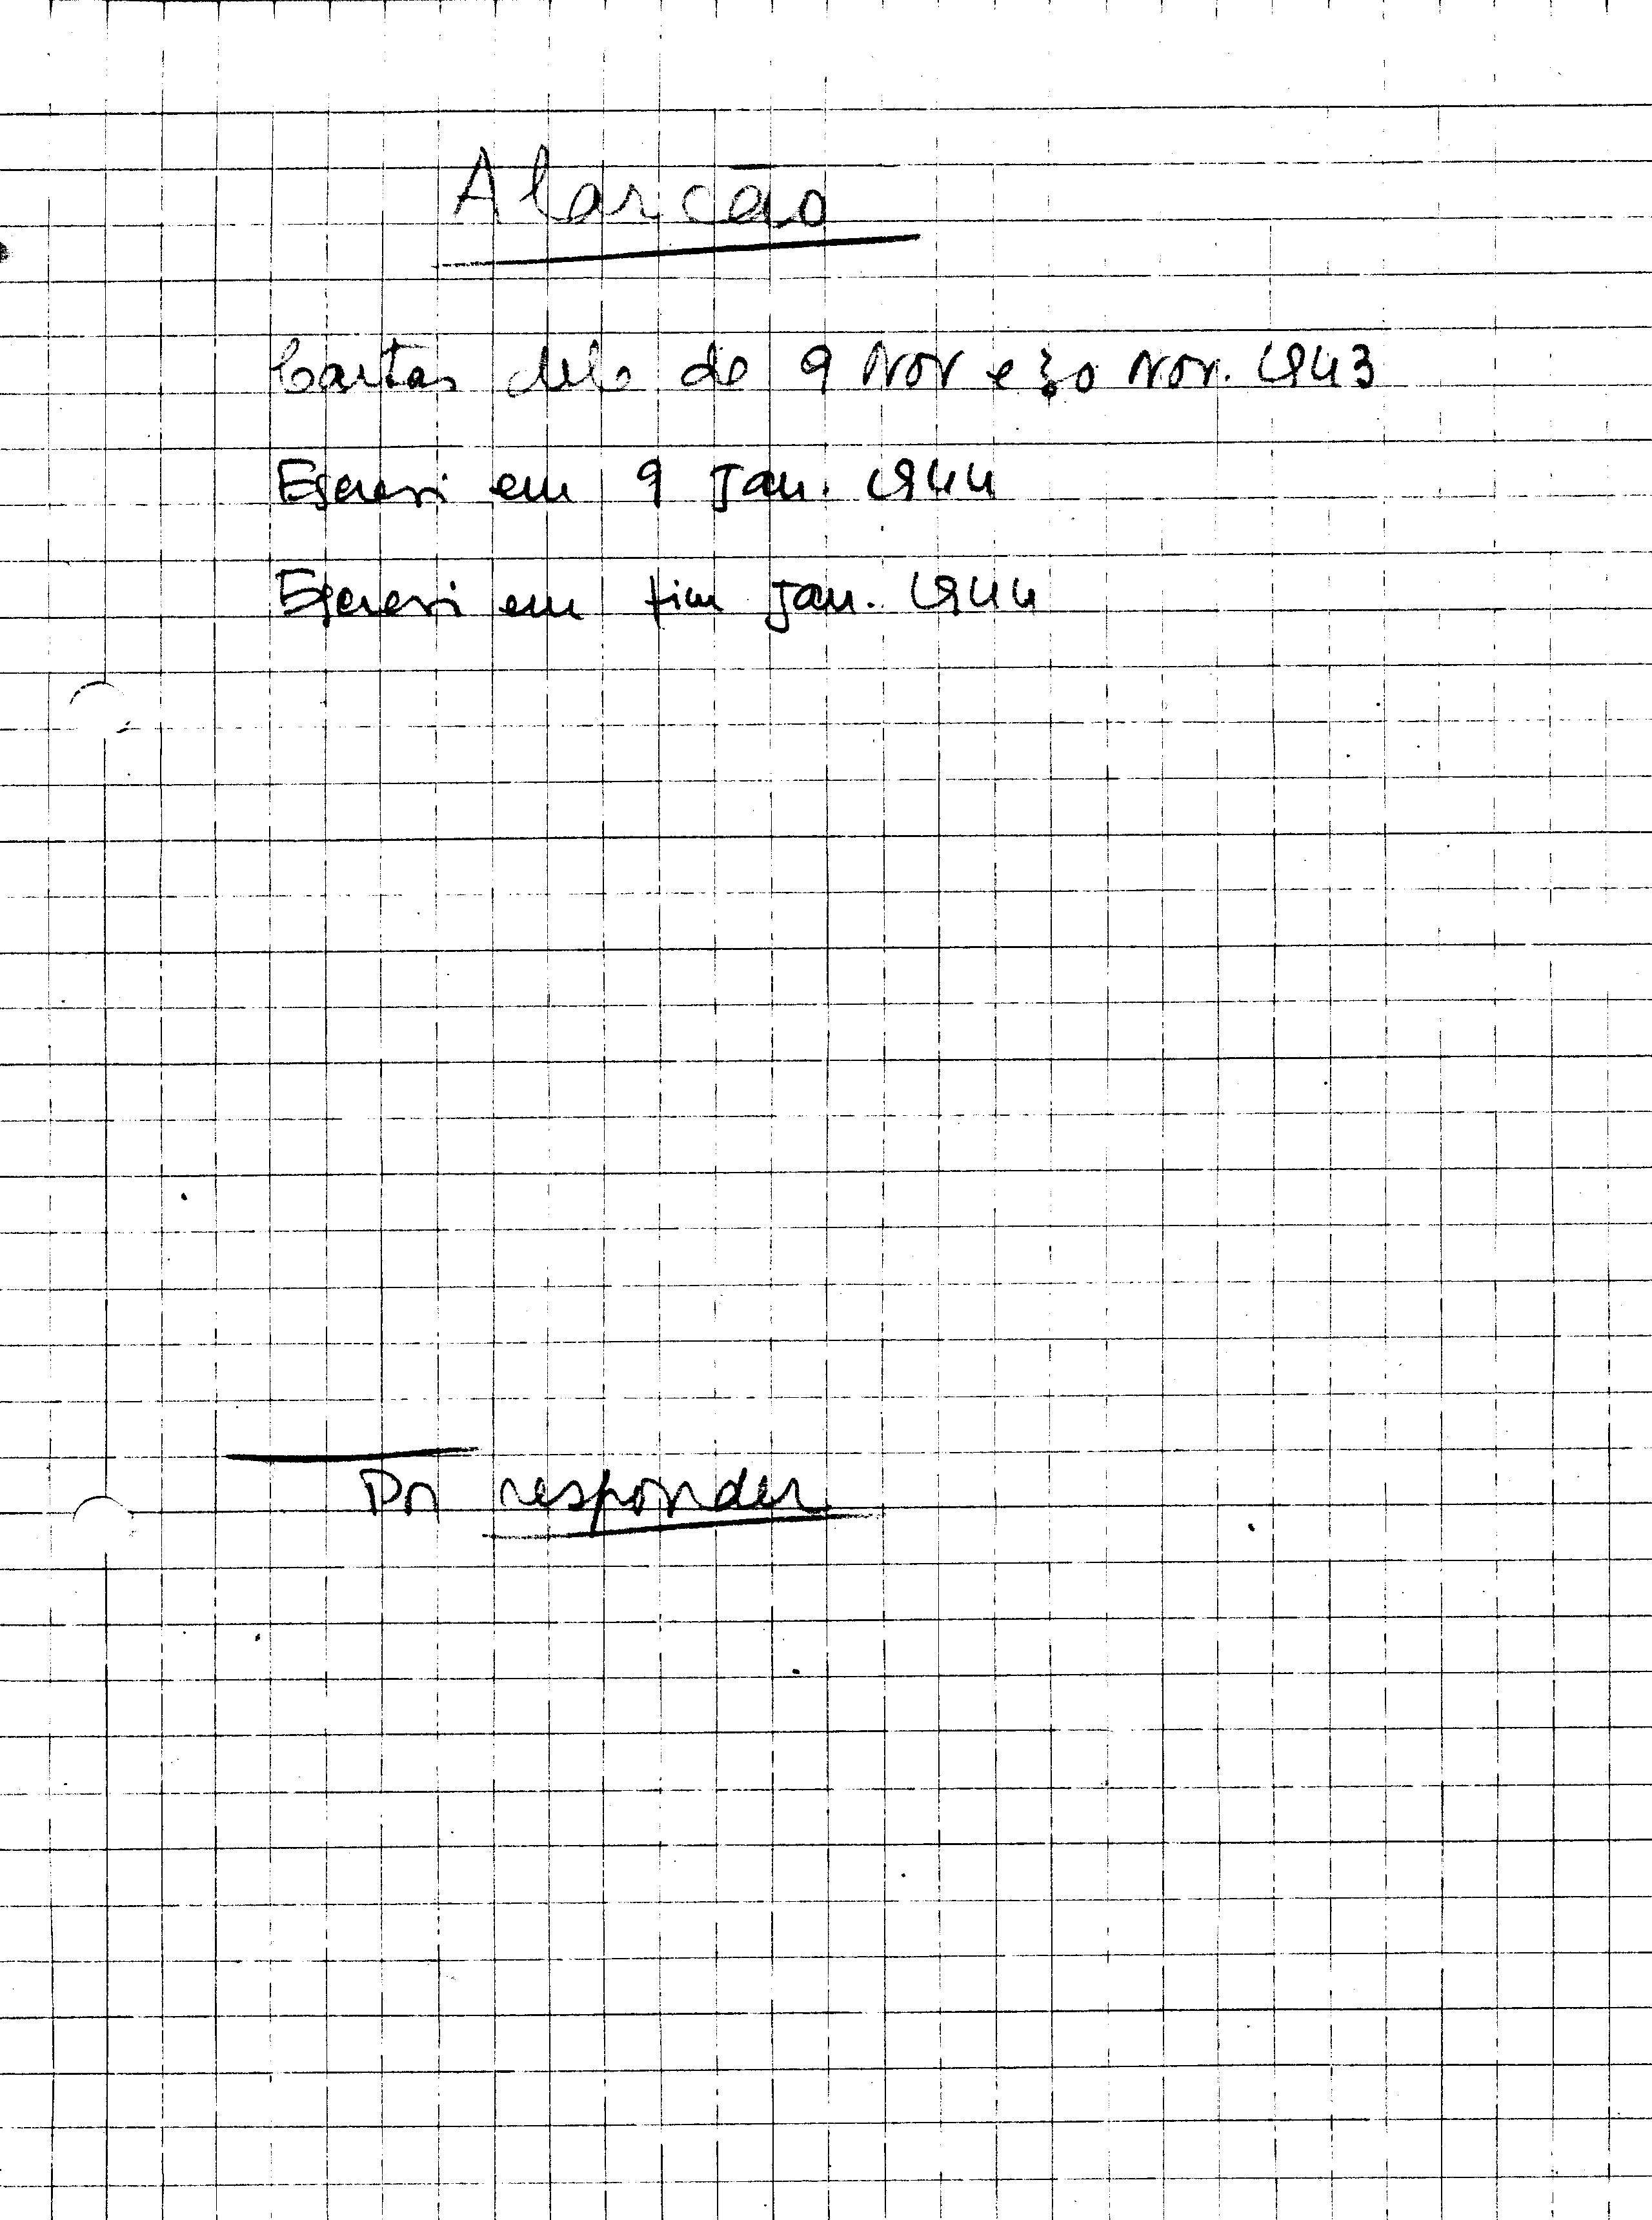 Alarcão
Cartas dele de 9 Nov e 30 Nov. 1943
Escrevi em 9 Jan. 1944
Escrevi em fim Jan. 1944
Por responder